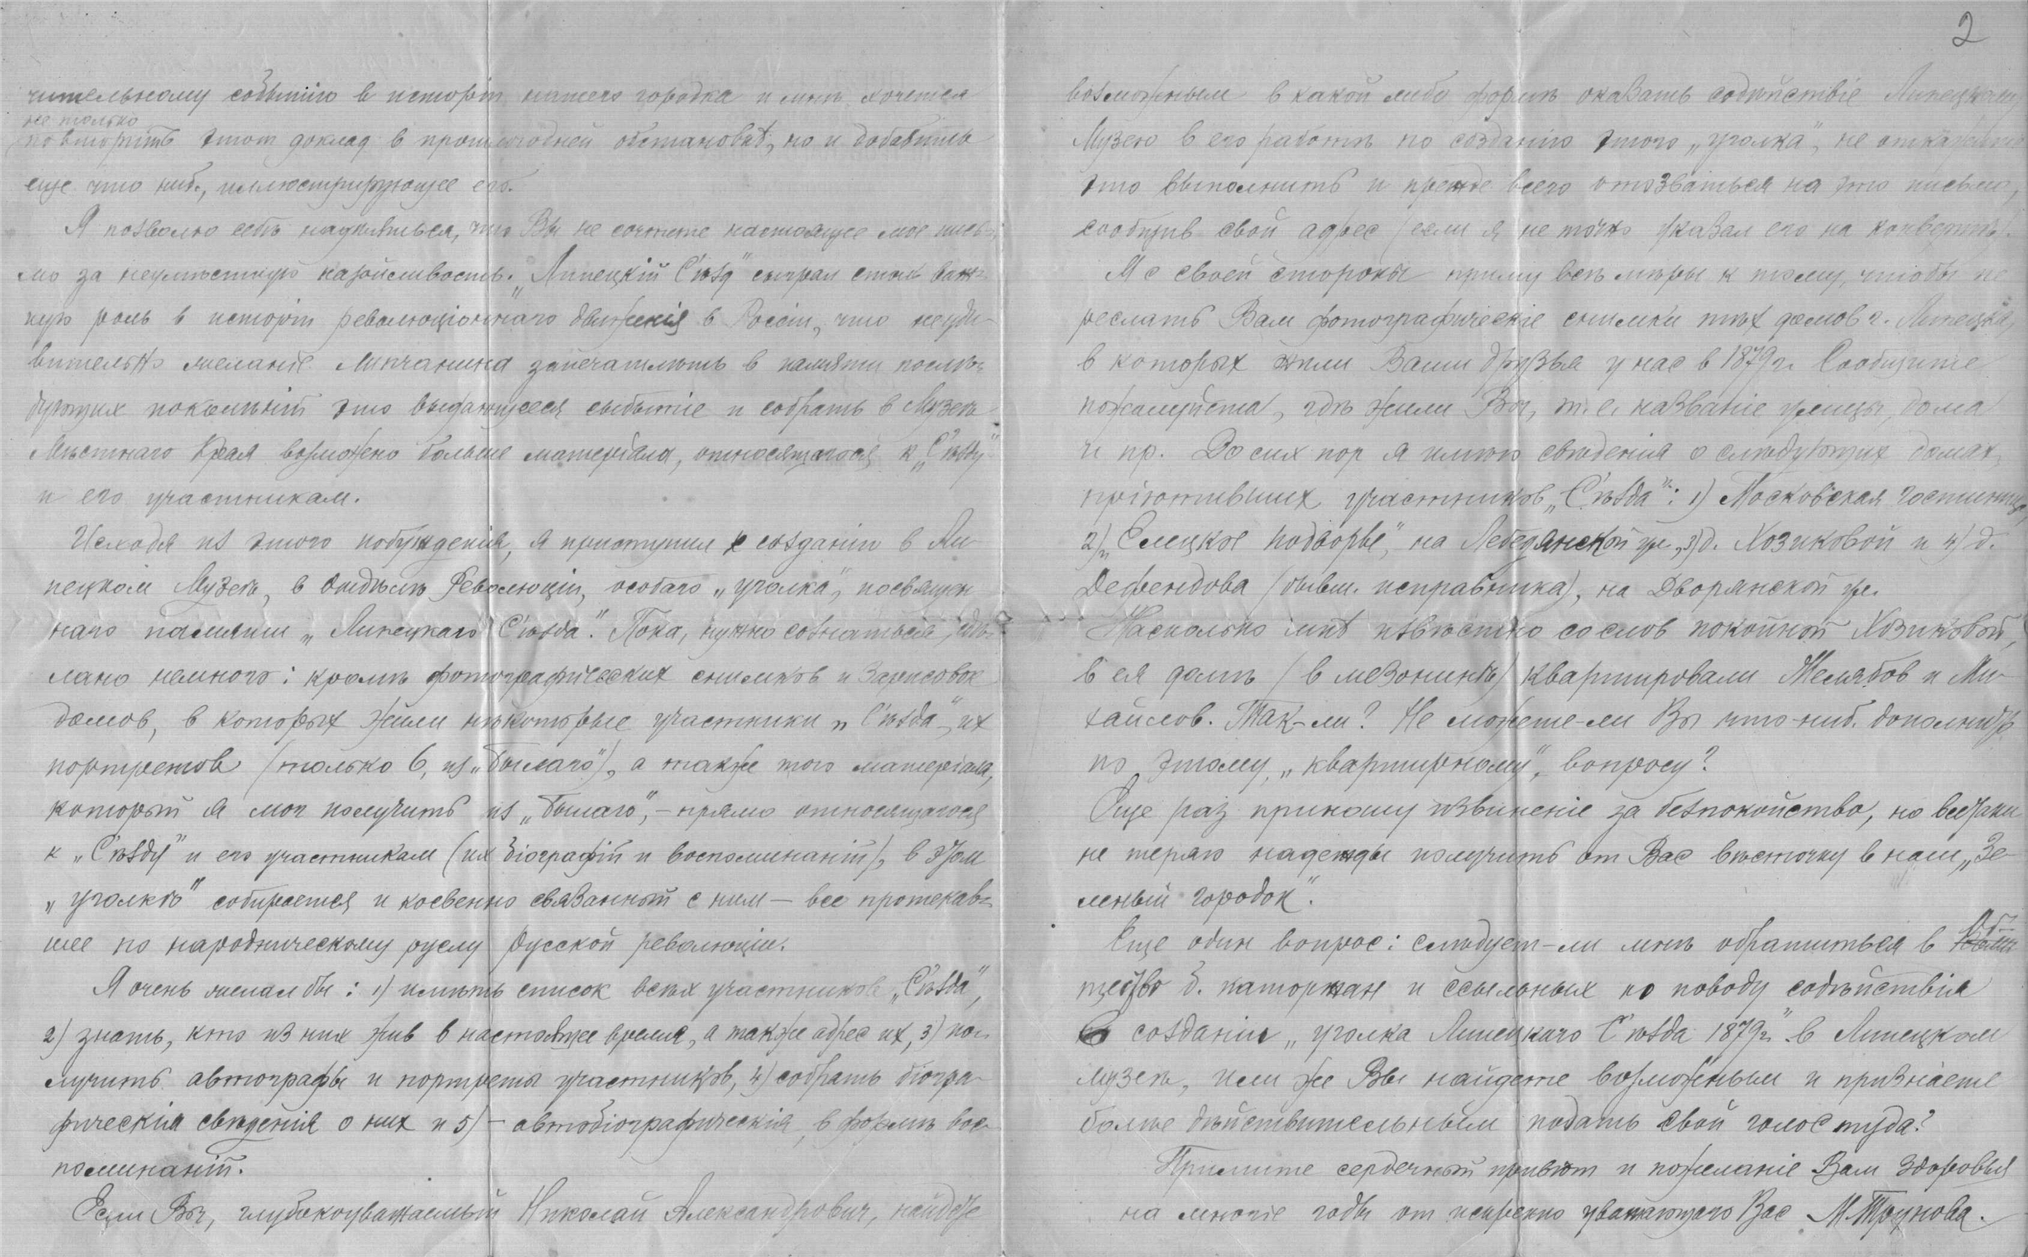 чительному событію в исторіи нашего городка и мнѣ хочется
не только
повторить этот доклад в прошлогодней обстановкѣ, но и добавить
еще что ниб., иллюстрирующее его.
Я позволю себѣ надѣяться, что Вы не сочтете настоящее мое пись-
мо за неумѣстную назойливость. „Липецкій Съѣзд" сыграл столь важ-
ную роль в исторіи революціоннаго движенія в Россіи, что неуди-
вительно желаніе липчанина запечатлѣть в памяти послѣ-
дующих поколѣній это выдающееся событіе и собрать в Музеѣ
Мѣстнаго Края возможно больше матеріала, относящагося к „Съѣзду"
и его участникам.
Исходя из этого побужденія, я приступил к созданію в Ли-
пецком Музеѣ, в отдѣлѣ Революціи, особаго „уголка", посвящен-
наго памяти „Липецкаго Съѣзда". Пока, нужно сознаться, сдѣ-
лано немного: кромѣ фотографических снимков и зарисовок
домов, в которых жили нѣкоторые участники „Съѣзда", их
портретов (только 6, из „Былого"), а также того матеріала,
который я мог получить из „Былого", – прямо относящагося
к „Съѣзду" и его участникам (их біографій и воспоминаній), в этом
„уголкѣ" собирается и косвенно связанный с ним – все протекав-
шее по народническому руслу русской революціи.
Я очень желал бы: 1) имѣть список всѣх участников „Съѣзда",
2) знать, кто из них жив в настоящее время, а также адрес их, 3) по-
лучить автографы и портреты участников, 4) собрать біогра-
фическія свѣденія о них и 5) – автобіографическія, в формѣ вос-
поминаній.
Если Вы, глубокоуважаемый Николай Александрович, найдете
2
возможным в какой либо формѣ оказать содѣйствіе Липецкому
Музею в его работѣ по созданію этого „уголка", не откажите
это выполнить и прежде всего отозваться на это письмо,
сообщив свой адрес (если я не точно указал его на конвертѣ).
Я с своей стороны приму всѣ мѣры к тому, чтобы пе-
реслать Вам фотографическіе снимки тѣх домов г. Липецка,
в которых жили Ваши друзья у нас в 1879 г. Сообщите
пожалуйста, гдѣ жили Вы, т. е. названіе улицы, дома
и пр. До сих пор я имѣю свѣденія о слѣдующих домах,
пріютивших участников „Съѣзда": 1) Московская гостиница,
2) „Елецкое подворье", на Лебедянской ул., 3) д. Хозиковой и 4) д.
Дефендова (бывш. исправника), на Дворянской ул.
Насколько мнѣ извѣстно со слов покойной Хозиковой,
в ея домѣ (в мезонинѣ) квартировали Желябов и Ми-
хайлов. Так-ли? Не можете-ли Вы что-ниб. дополнить
по этому, „квартирному", вопросу?
Еще раз приношу извиненіе за безпокойство, но всетаки
не теряю надежды получить от Вас вѣсточку в наш „Зе-
леный городок".
Еще один вопрос: слѣдует-ли мнѣ обратиться в Об-
щество б. каторжан и ссыльных по поводу содѣйствія
созданію „уголка Липецкаго Съѣзда 1879 г." в Липецком
музеѣ, или же Вы найдете возможным и признаете
болѣе дѣйствительным подать свой голос туда?
Примите сердечный привѣт и пожеланіе Вам здоровья
на многіе годы от искренно уважающаго Вас М. Трунова.